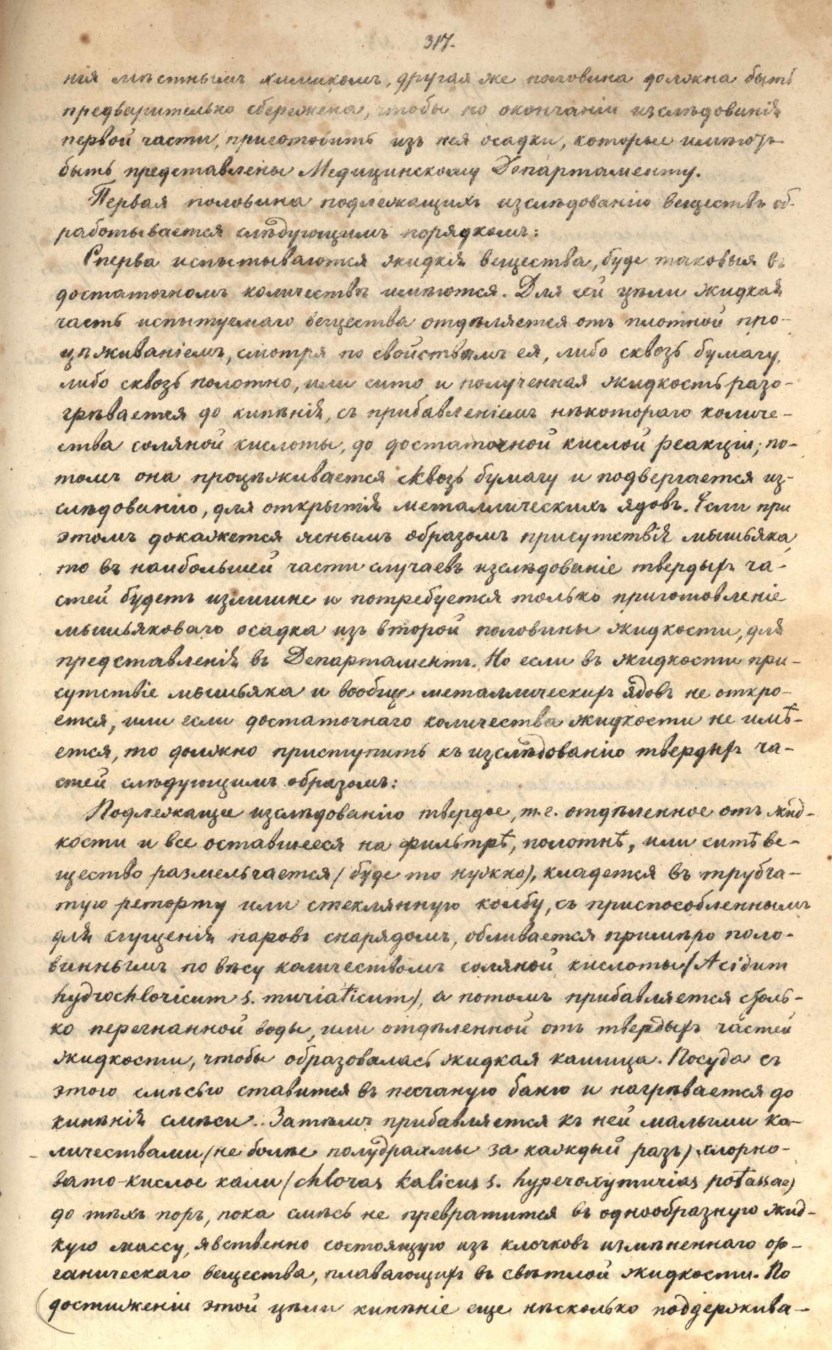 317.
нія мѣстнымъ химикомъ, другая же половина должна быть
предварительно сбережена, чтобы по окончаніи изслѣдованія
первой части, приготовить изъ нея осадки, которые имѣютъ
быть представлены Медицинскому Департаменту.
Первая половина подлежащихъ изслѣдованію веществъ об-
работывается слѣдующимъ порядкомъ:
Сперва испытываются жидкія вещества, буде таковыя въ
достаточномъ количествѣ имѣются. Для сей цѣли жидкая
часть испытуемаго вещества отдѣляется отъ плотной про-
цѣживаніемъ, смотря по свойствамъ ея, либо сквозь бумагу,
либо сквозь полотно, или сито и полученная жидкость разо-
грѣвается до кипѣнія, съ прибавленіемъ нѣкотораго количе-
ства соляной кислоты, до достаточной кислой реакціи; по-
томъ она процѣживается сквозь бумагу и подвергается из-
слѣдованію, для открытія металлическихъ ядовъ. Если при
этомъ докажется яснымъ образомъ присутствія мышьяка
то въ наибольшей части случаевъ изслѣдованіе твердыхъ ча-
стей будетъ излишне и потребуется только приготовленіе
мышьяковаго осадка изъ второй половины жидкости, для
представленія въ Департаментъ. Но если въ жидкости при-
сутствіе мышьяка и вообще металлическихъ ядовъ не откро-
ется, или если достаточнаго количества жидкости не имѣ-
ется, то должно приступить къ изслѣдованію твердыхъ ча-
стей слѣдующимъ образомъ:
Подлежащее изслѣдованію твердое, т.е. отдѣленное отъ жид-
кости и все оставшееся на фильтрѣ, полотнѣ, или ситѣ ве-
щество размельчается (буде то нужно), кладется въ трубча-
тую реторту или стеклянную колбу, съ приспособленнымъ
для сгущенія паровъ снарядомъ, обливается примѣрно поло-
виннымъ по вѣсу количествомъ соляной кислоты (Acidum
hydrochloricum s. muriaticum), а потомъ прибавляется столь-
ко перегнанной воды, или отдѣленной отъ твердыхъ частей
жидкости, чтобы образовалась жидкая кашица. Посуда съ
этою смѣсью ставится въ песчаную баню и нагрѣвается до
кипѣнія смѣси. Затѣмъ прибавляется къ ней малыми ко-
личествами (не болѣе полудрахмы за каждый разъ) хлорно-
вато-кислое кали (chloras kalicus s. hyperoxymurias potassae)
до тѣхъ поръ, пока смѣсь не превратится въ однообразную жид-
кую массу, явственно состоящую изъ клочковъ измѣненнаго ор-
ганическаго вещества, плавающихъ въ свѣтлой жидкости. По
достиженіи этой цѣли кипѣніе еще нѣсколько поддержива-